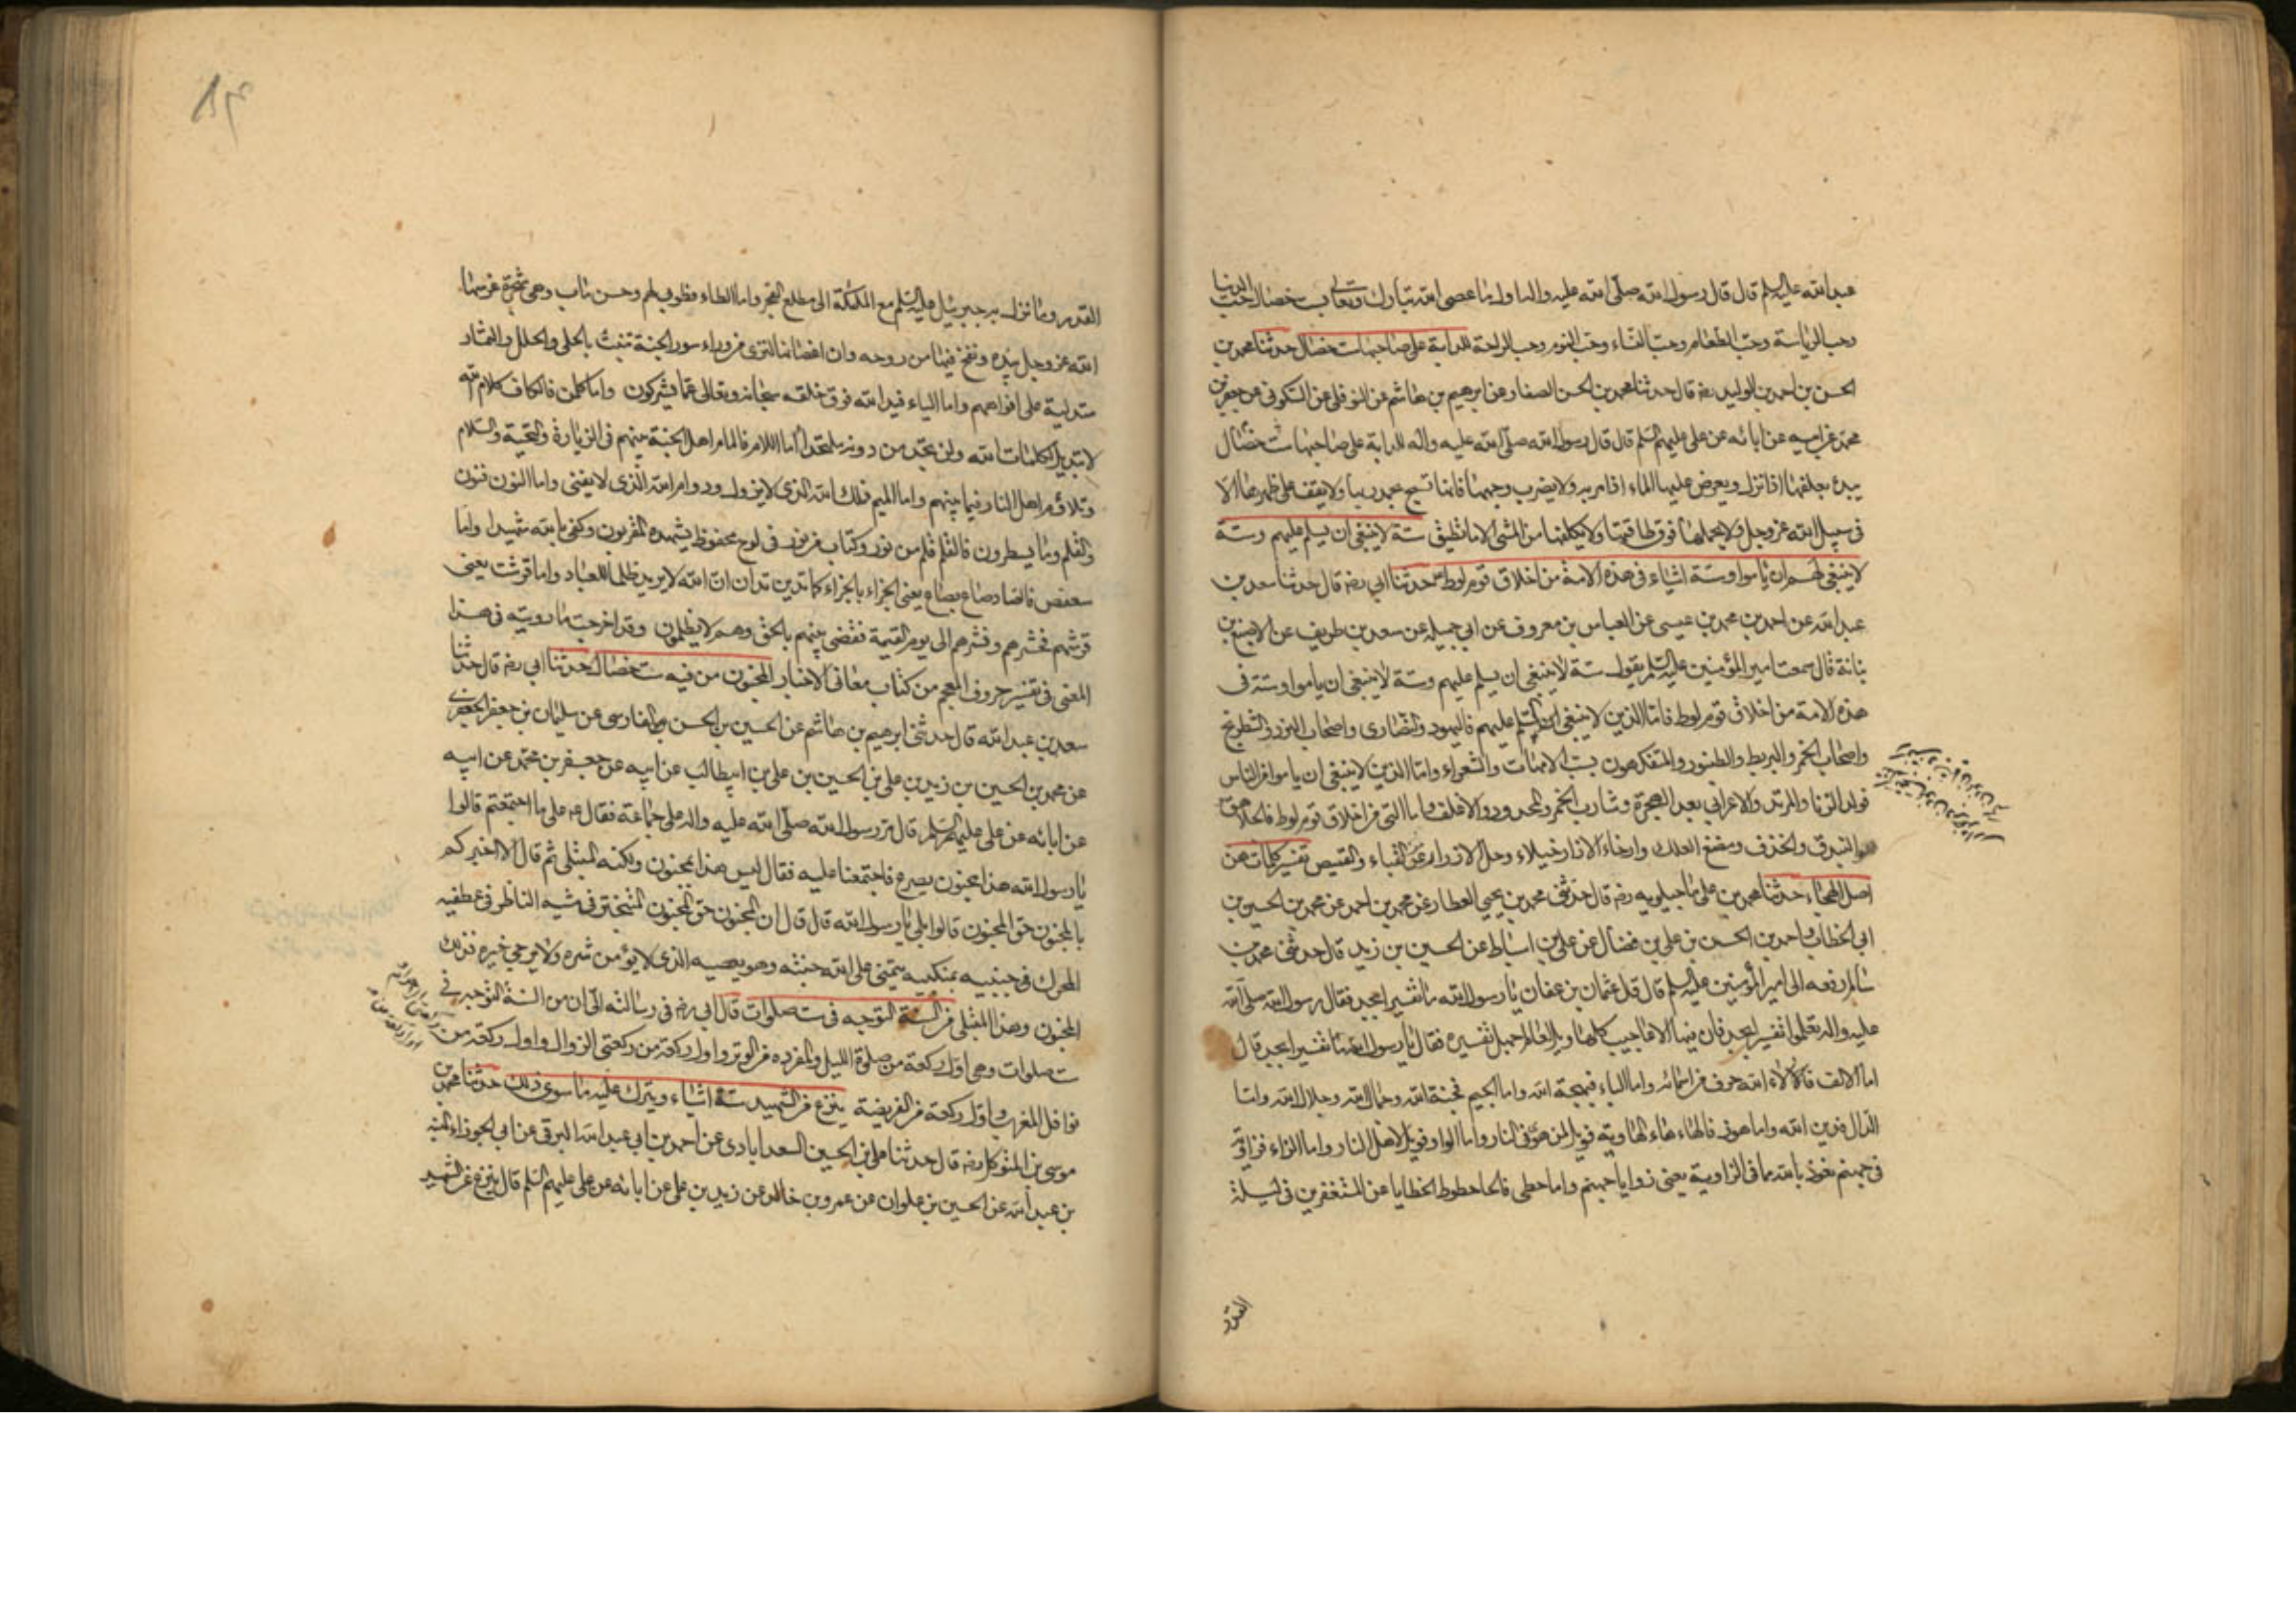 عبد الله عليه السلم قال قال رسول الله صلى الله عليه واله اول ما عصى الله تبارك وتعالى بست خصال حب الدنيا
وحب الرياسة وحب الطعام وحب النساء وحب النوم وحب الراحة للدابة على صاحبها ست خصال حدثنا محمد بن
الحسن بن احمد بن الوليد رضه قال حدثنا محمد بن الحسن الصفار عن ابرهيم بن هاشم عن النوفلى عن السكونى عن جعفر بن
محمد عن ابيه عن ابائه عن على عليهم السلم قال قال رسول الله صلى الله عليه واله للدابة على صاحبها ست خصال
يبدء بعلفها اذا نزل ويعرض عليها الماء اذا مر به ولا يضرب وجهها فانها تسبح بحمد ربها ولا يقف على ظهرها الا
فى سبيل الله عز وجل ولا يحملها فوق طاقتها ولا يكلفها من المشى الا ما تطيق ستة لا ينبغى ان يسلم عليهم وستة
لا ينبغى لهم ان ياموا وستة اشياء فى هذه الامة من اخلاق قوم لوط حدثنا ابي رضه قال حدثنا سعد بن
عبد الله عن احمد بن محمد بن عيسى عن العباس بن معروف عن ابي جميله عن سعد بن طريف عن الاصبغ بن
نباتة قال سمعت امير المؤمنين عليه السلم يقول ستة لا ينبغى ان يسلم عليهم وستة لا ينبغى ان ياموا وستة فى
هذه الامة من اخلاق قوم لوط فاما الذين لا ينبغى ان يسلم عليهم فاليهود والنصارى واصحاب النرد والشطرنج
واصحاب الخمر والبربط والطنبور والمتفكهون بسب الامهات والشعراء واما الذين لا ينبغى ان ياموا من الناس
فولد الزنا والمرتد والاعرابي بعد الهجرة وشارب الخمر والمحدود والاغلف واما التى من اخلاق قوم لوط فالجلاهق
وهو البندق والخذف ومضغ العلك وارخاء الازار خيلاء وحل الازرار من القباء والقميص تفسير كلمات هن
اصل الهجاء حدثنا محمد بن على ماجيلويه رضه قال حدثنى محمد بن يحيى العطار عن محمد بن احمد عن محمد بن الحسين بن
ابى الخطاب واحمد بن الحسن بن على بن فضال عن على بن اسباط عن الحسين بن زيد قال حدثنى محمد بن
سالم رفعه الى امير المؤمنين عليه السلم قال قال عثمان بن عفان يا رسول الله ما تفسير ابجد فقال رسول الله صلى الله
عليه واله تعلموا تفسير ابجد فان فيها الاعاجيب كلها ويل لعالم جهل تفسيره فقال يا رسول الله ما تفسير ابجد قال
اما الالف فالاء الله حرف من اسمائه واما الباء فبهجة الله واما الجيم فجنة الله وجمال الله وجلال الله واما
الدال فدين الله واما هوز فالهاء هاء الهاوية فويل لمن هوى فى النار واما الواو فويل لاهل النار واما الزاء فزاوية
فى جهنم نعوذ بالله مما فى الزاوية يعنى زوايا جهنم واما حطى فالحا حطوط الخطايا عن المستغفرين فى ليلة
القدر
القدر وما نزل به جبرئيل عليه السلم مع الملئكة الى مطلع الفجر واما الطاء فطوبى لهم وحسن ماب وهى شجرة غرسها
الله عز وجل بيده ونفخ فيها من روحه وان اغصانها لترى من وراء سور الجنة تنبت بالحلى والحلل والثمار
متدلية على افواههم واما الياء فيد الله فوق خلقه سبحانه وتعالى عما يشركون واما كلمن فالكاف كلام الله
لا تبديل لكلمات الله ولن تجد من دونه ملتحدا اما اللام فالمام اهل الجنة بينهم فى الزيارة والتحية والسلام
وتلاؤم اهل النار فيما بينهم واما الميم فملك الله الذى لا يزول ودوام الله الذى لا يفنى واما النون فنون
والقلم وما يسطرون فالقلم قلم من نور وكتاب من نور فى لوح محفوظ يشهده المقربون وكفى بالله شهيدا واما
سعفص فالصاد صاع بصاع يعنى الجزاء بالجزاء كما تدين تدان ان الله لا يريد ظلما للعباد واما قرشت يعنى
قرشهم فحشرهم ونشرهم الى يوم القيمة فقضى بينهم بالحق وهم لا يظلمون وقد اخرجت ما رويته فى هذا
المعنى فى تفسير حروف المعجم من كتاب معانى الاخبار المجنون من فيه ست خصال حدثنا ابى رضه قال حدثنا
سعد بن عبد الله قال حدثنى ابرهيم بن هاشم عن الحسين بن الحسن الفارسى عن سليمان بن جعفر الجعفرى
عن محمد بن الحسين بن زيد بن على بن الحسين بن على بن ابيطالب عن ابيه عن جعفر بن محمد عن ابيه
عن ابائه عن على عليهم السلم قال مر رسول الله صلى الله عليه واله على جماعة فقال عم على ما اجتمعتم قالوا
يا رسول الله هذا مجنون يصرع فاجتمعنا عليه فقال ليس هذا بمجنون ولكنه المبتلى ثم قال الا اخبركم
بالمجنون حق المجنون قالوا بلى يا رسول الله قال ان المجنون حق المجنون المتبختر فى مشيه الناظر فى عطفيه
المحرك فى جنبيه بمنكبيه يتمنى على الله جنته وهو يعصيه الذى لا يؤمن شره ولا يرجى خيره فذلك
المجنون وهذا المبتلى من السنة التوجه فى ست صلوات قال ابى رضه فى رسالته الى ان من السنة التوجه فى
ست صلوات وهى اول ركعة من صلوة الليل والمفرده من الوتر واول ركعة من ركعتى الزوال واول ركعة من
نوافل المغرب واول ركعة من الفريضة ينزع من الشهيد ستة اشياء ويترك عليه ما سوى ذلك حدثنا محمد بن
موسى بن المتوكل رضه قال حدثنا على بن الحسين السعدابادى عن احمد بن ابى عبد الله البرقى عن ابى الجوزاء المنبه
بن عبد الله عن الحسين بن علوان عن عمرو بن خالد عن زيد بن على عن ابائه عن على عليهم السلم قال ينزع عن الشهيد